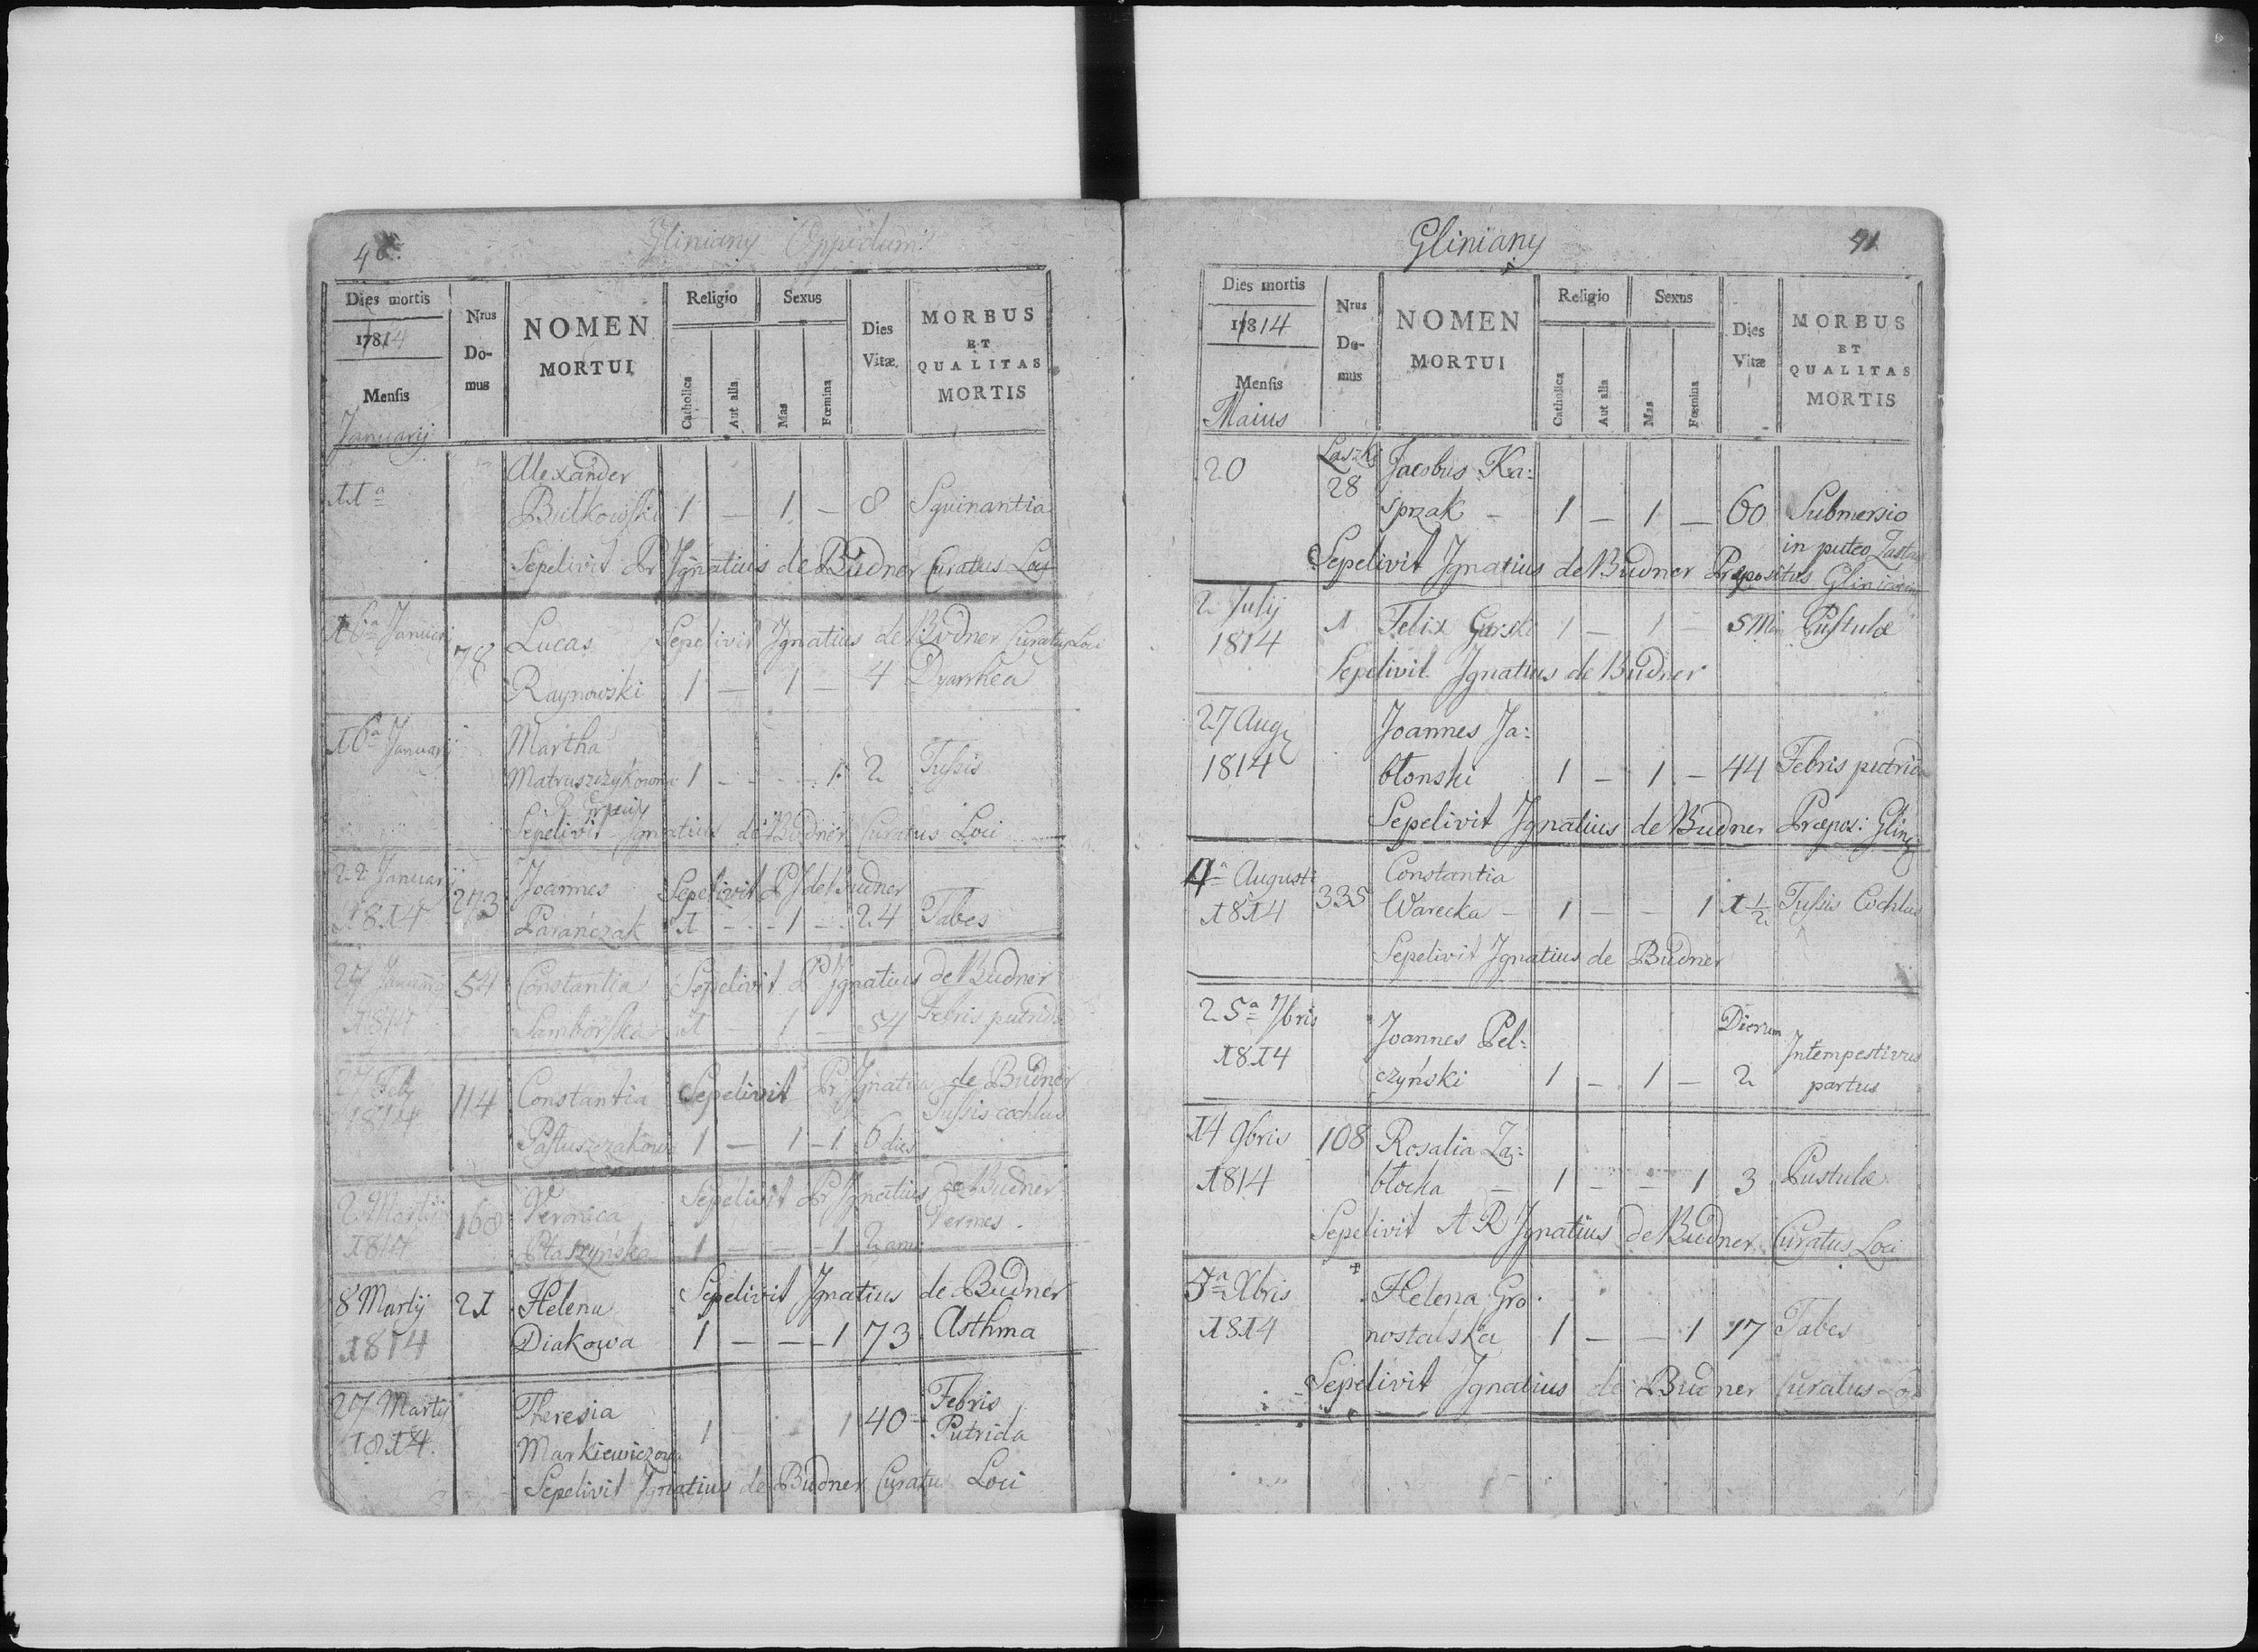 40
Gliniany Oppidum
Dies mortis
17814
Mensis
Januarij
Nrus
Do-
mus
NOMEN
MORTUI
Religio
Catholica
Aut alia
Sexus
Mas
Fœmina
Dies
Vitæ
MORBUS
ET
QUALITAS
MORTIS
Alexander
11a
Butkowski 1 — 1 — 8 Squinantia
Sepelivit Pr Ignatius de Budner Curatus Loci
16a Januarij 78 Lucas Sepelivit Ignatius de Budner Curatus Loci
Raynowski 1 — 1 — 4 Dyarrhea
16a Januarij Martha
Matruszczykowna 1 - - - 1 2 Tussis
Sepelivit Ignatius de Budner Curatus Loci
22 Januarij 273 Joannes Sepelivit P J de Budner
1814 Parańczak 1 - - 1 - 24 Tabes
27 Januarij 54 Constantia Sepelivit P Ignatius de Budner
1814 Samborska 1 — 1 — 54 Febris putrida
27 Feb 114 Constantia Sepelivit Pr Ignatius de Budner
1814 Tussis cochlus
Pastuszczakowna 1 — 1 - 1 6 dies
2 Martij 168 Veronica Sepelivit Pr Ignatius de Budner
Vermes
1814 Ptaszyńska 1 — — 1 2 ann
8 Martij 21 Helena Sepelivit Ignatius de Budner
1814 Diakowa 1 — — 1 73 Asthma
27 Martij Theresia 1 - - 1 40 Febris
1814 Markiewiczowa Putrida
Sepelivit Ignatius de Budner Curatus Loci
Gliniany
41
Dies mortis
17814
Mensis
Maius
Nrus
Do-
mus
NOMEN
MORTUI
Religio
Catholica
Aut alia
Sexus
Mas
Fœmina
Dies
Vitæ
MORBUS
ET
QUALITAS
MORTIS
20 Laszki Jacobus Ka:
28 sprzak - 1 — 1 — 60 Submersio
in puteo
Sepelivit Ignatius de Budner Præpositus
2 Julij 1 Felix Gurski 1 — 1 — 5 Men Pustulæ
1814
Sepelivit Ignatius de Budner
27 Aug Joannes Ja:
1814 błonski 1 — 1 — 44 Febris putrida
Sepelivit Ignatius de Budner Præpos: Glin
4a Augusti 335 Constantia
1814 Warecka — 1 — — 1 1 1/2 Tussis Cochlus
Sepelivit Ignatius de Budner
25a 7bris Joannes Pel: Dierum Intempestivus
1814 czyński 1 — 1 — 2 partus
14 9bris 108 Rosalia Za:
1814 błocka — 1 — — 1 3 Pustulæ
Sepelivit A R Ignatius de Budner Curatus Loci
5a Xbris Helena Gro:
1814 nostalska 1 — — 1 17 Tabes
Sepelivit Ignatius de Budner Curatus Loci